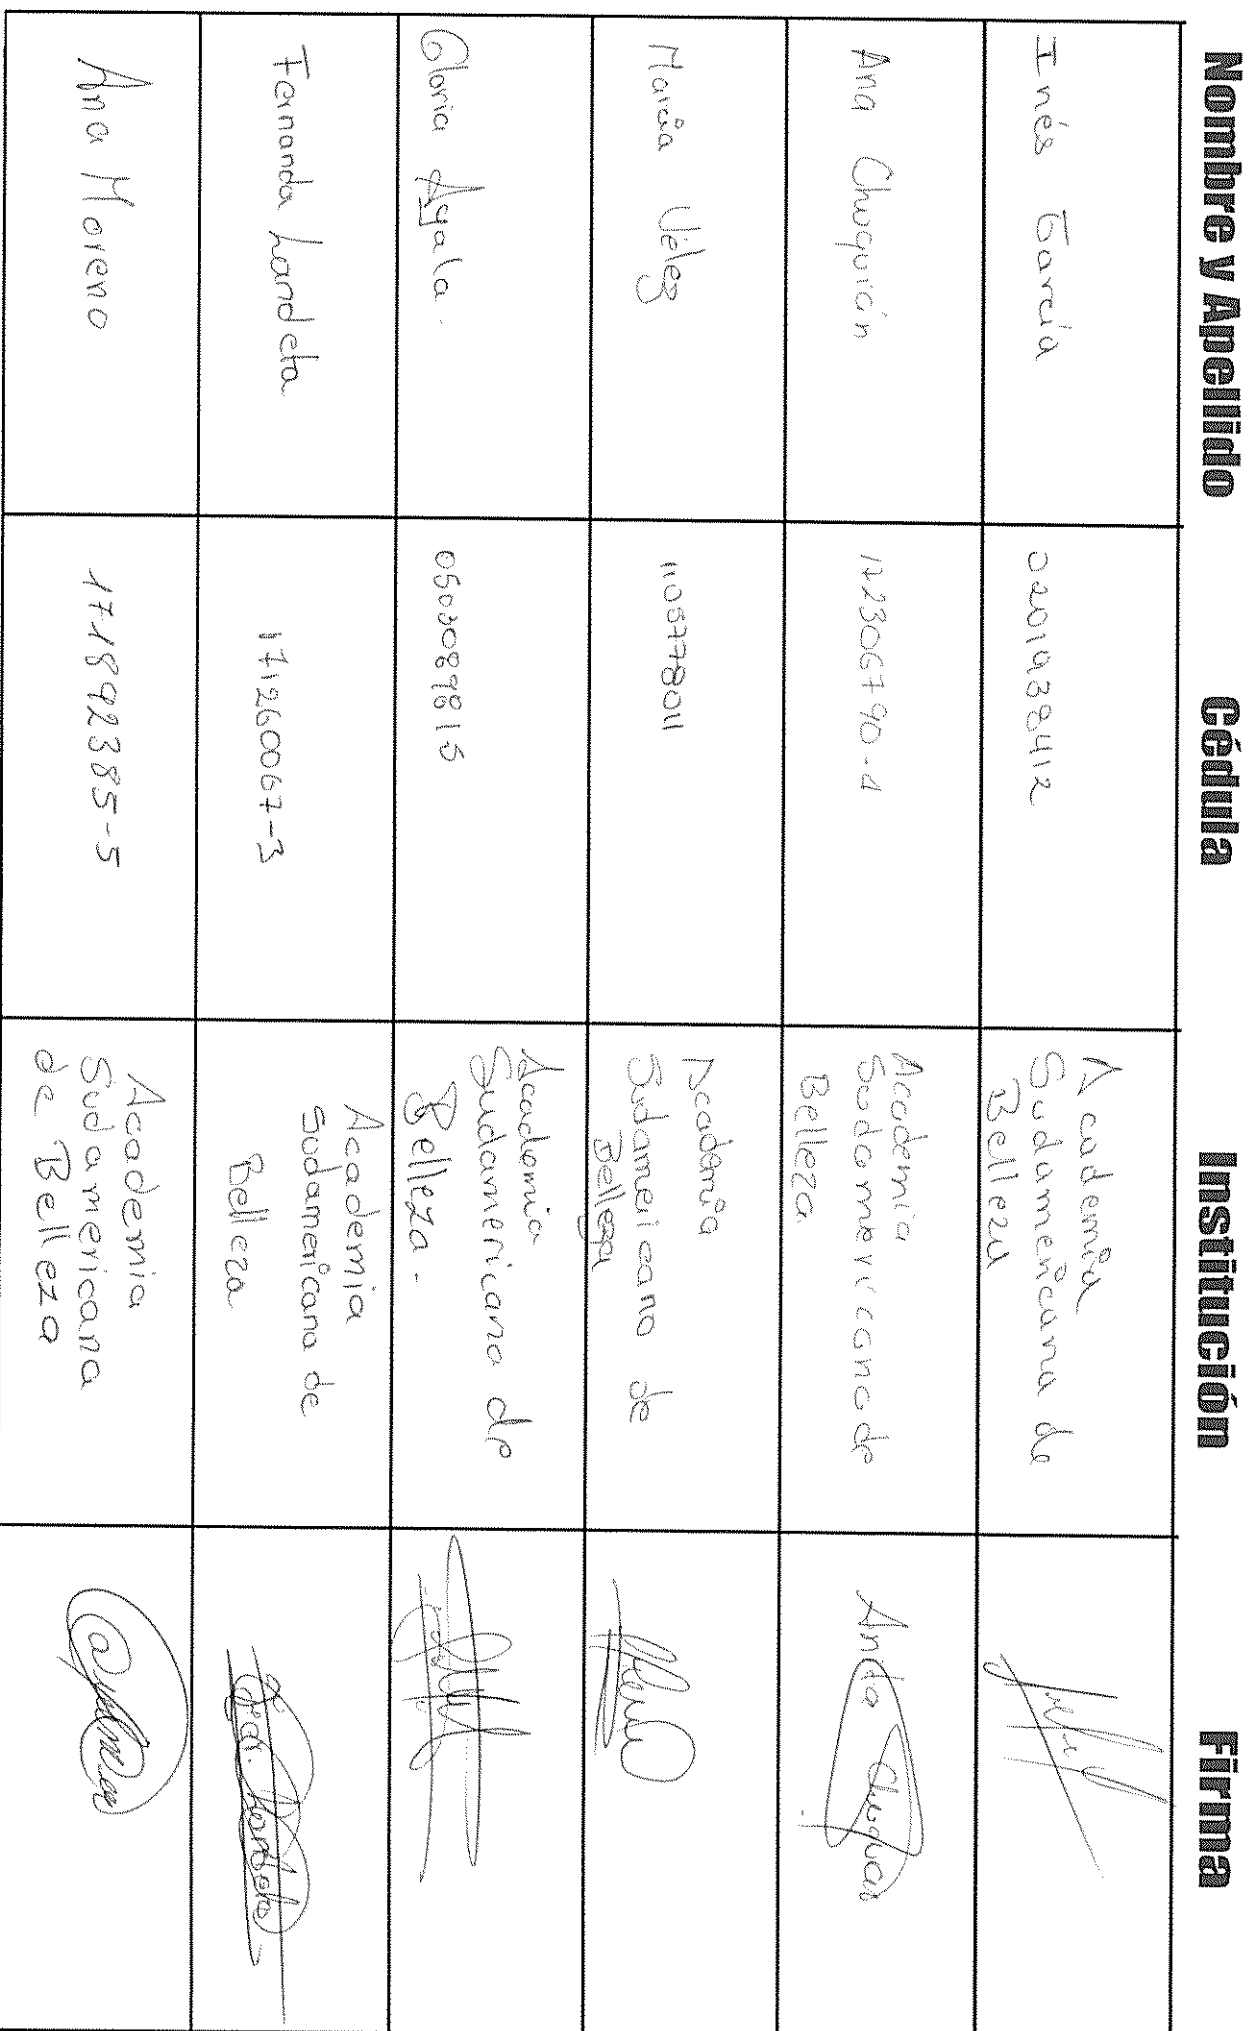 Nombre y Apellido Cédula Institución Firma
Inés García 0201938412 Academia
Sudamericana de
Belleza
Ana Chuquirín 172306790-1 Academia
Sudamericana de
Belleza Anita
María Vélez 1105778011 Academia
Sidameicano de
Belleza
Gloria Ayala. 0503089815 Academia
Sudamericano de
Belleza.
Fernanda Landeta 171260067-3 Academia
Sudamericana de
Belleza
Ana Moreno 171892385-5 Academia
Sudamericana
de Belleza